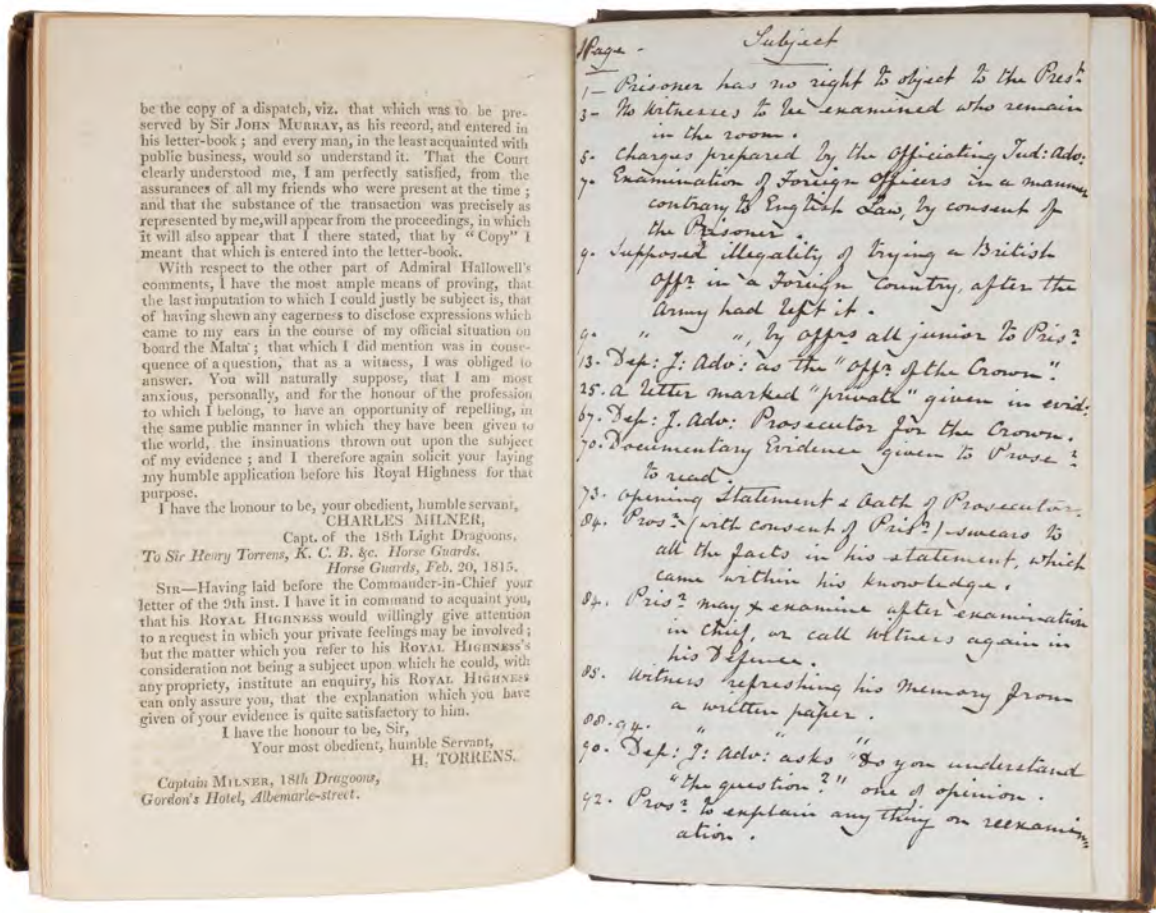 be the copy of a dispatch, viz. that which was to be pre-
served by Sir JOHN MURRAY, as his record, and entered in
his letter-book ; and every man, in the least acquainted with
public business, would so understand it. That the Court
clearly understood me, I am perfectly satisfied, from the
assurances of all my friends who were present at the time ;
and that the substance of the transaction was precisely as
represented by me, will appear from the proceedings, in which
it will also appear that I there stated, that by “ Copy” I
meant that which is entered into the letter-book.
With respect to the other part of Admiral Hallowell's
comments, I have the most ample means of proving, that
the last imputation to which I could justly be subject is, that
of having shewn any eagerness to disclose expressions which
came to my ears in the course of my official situation on
board the Malta ; that which I did mention was in conse-
quence of a question, that as a witness, I was obliged to
answer. You will naturally suppose, that I am most
anxious, personally, and for the honour of the profession
to which I belong, to have an opportunity of repelling, in
the same public manner in which they have been given to
the world, the insinuations thrown out upon the subject
of my evidence ; and I therefore again solicit your laying
my humble application before his Royal Highness for that
purpose.
I have the honour to be, your obedient, humble servant,
CHARLES MILNER,
Capt. of the 18th Light Dragoons.
To Sir Henry Torrens, K. C. B. &c. Horse Guards.
Horse Guards, Feb. 20, 1815.
SIR—Having laid before the Commander-in-Chief your
letter of the 9th inst. I have it in command to acquaint you,
that his ROYAL HIGHNESS would willingly give attention
to a request in which your private feelings may be involved ;
but the matter which you refer to his ROYAL HIGHNESS's
consideration not being a subject upon which he could, with
any propriety, institute an enquiry, his ROYAL HIGHNESS
can only assure you, that the explanation which you have
given of your evidence is quite satisfactory to him.
I have the honour to be, Sir,
Your most obedient, humble Servant,
H. TORRENS.
Captain MILNER, 18th Dragoons,
Gordon's Hotel, Albemarle-street.
Page - Subject
1 - Prisoner has no right to object to the Prest
3 - No Witnesses to be examined who remain
in the room.
5. Charges prepared by the Officiating Jud: Adv:
7. Examination of Foreign Officers in a manner
contrary to English Law, by consent of
the Prisoner.
9. Supposed illegality of trying a British
Offr in a Foreign Country, after the
Army had left it.
9. " ", by offrs all junior to Prisr
13. Dep: J: Adv: as the "offr of the Crown".
25. A letter marked "private" given in evid:
67. Dep: J. Adv: Prosecutor for the Crown.
70. Documentary Evidence given to Prosr
to read.
73. Opening Statement & Oath of Prosecutor.
84. Prosr (with consent of Prisr) swears to
all the facts in his statement, which
came within his knowledge.
84. Prisr may x examine after examination
in chief, or call Witness again in
his Defence.
85. Witness refreshing his Memory from
a written paper.
88.94. " "
90. Dep: J: Adv: asks "Do you understand
"the question?" one of opinion.
92. Prosr to explain any thing on reexamin
ation.